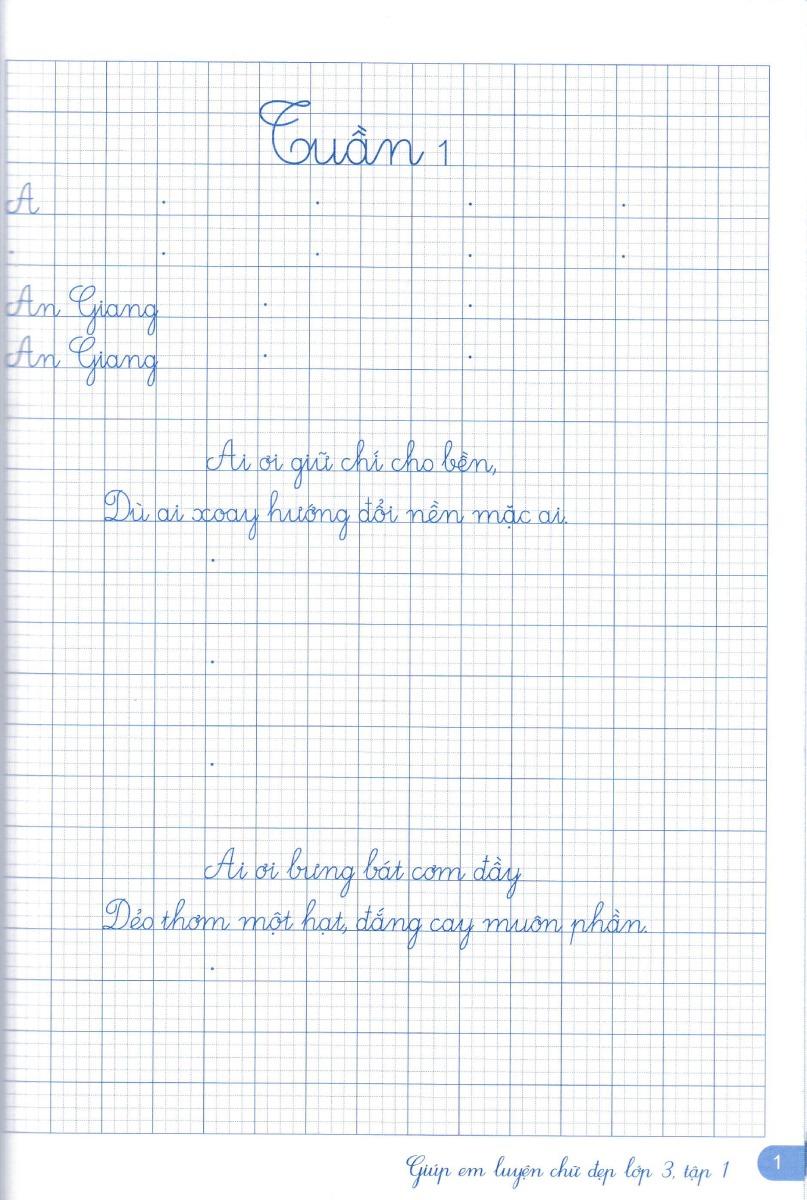 Tuần 1
A
An Giang
An Giang
Ai ơi giữ chí cho bền,
Dù ai xoay hướng đổi nền mặc ai.
Ai ơi bưng bát cơm đầy
Dẻo thơm một hạt, đắng cay muôn phần.
Giúp em luyện chữ đẹp lớp 3, tập 1 1